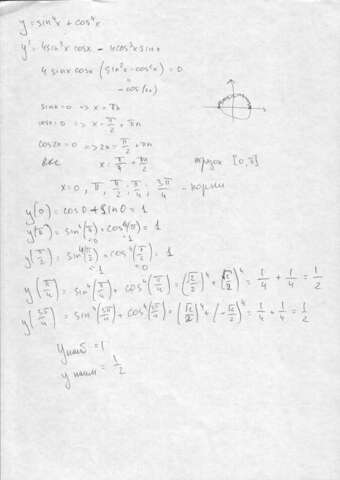 y = sin⁴x + cos⁴x
y' = 4sin³x cosx - 4cos³x sinx
4 sinx cosx (sin²x - cos²x) = 0
- cos(2x)
sinx = 0 => x = πn
cosx = 0 => x = π/2 + πn
cos2x = 0 => 2x = π/2 + πn
x = π/4 + πn/2
отрезок [0, π]
x = 0, π, π/2; π/4; 3π/4 - корни
y(0) = cos0 + sin0 = 1
y(π) = sin⁴(π) + cos⁴(π) = 1
=0 =1
y(π/2) = sin⁴(π/2) + cos⁴(π/2) = 1
=1 =0
y(π/4) = sin⁴(π/4) + cos⁴(π/4) = (√2/2)⁴ + (√2/2)⁴ = 1/4 + 1/4 = 1/2
y(3π/4) = sin⁴(3π/4) + cos⁴(3π/4) = (√2/2)⁴ + (-√2/2)⁴ = 1/4 + 1/4 = 1/2
y наиб = 1
y наим = 1/2